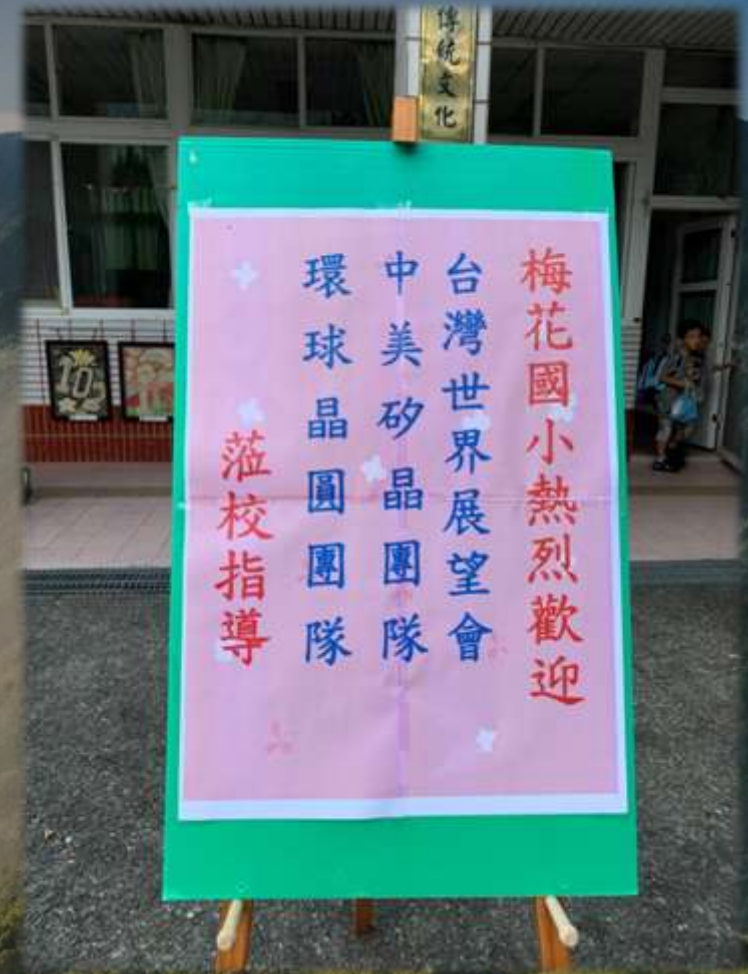 傳統文化
梅花國小熱烈歡迎
台灣世界展望會
中美矽晶團隊
環球晶圓團隊
蒞校指導
10